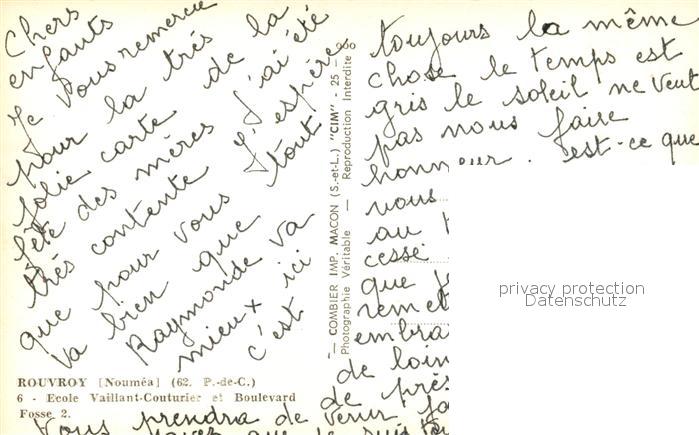 Chers
enfants
Je vous remercie
pour la très
jolie carte de la
fête des mères J'ai été
très contente J'espère
que pour vous tout
va bien que
Raymonde va
mieux ici
c'est
toujours la même
chose le temps est
gris le soleil ne veut
pas nous faire
honneur. est-ce que
vous
au
cesse
que
remet
embra
de loin
de près
vous prendra de venir
COMBIER IMP. MACON (S.-et-L.) "CIM" - 25 - 960
Photographie Véritable — Reproduction Interdite
ROUVROY [Nouméa] (62. P.-de-C.)
6 - Ecole Vaillant-Couturier et Boulevard
Fosse 2.
privacy protection
Datenschutz